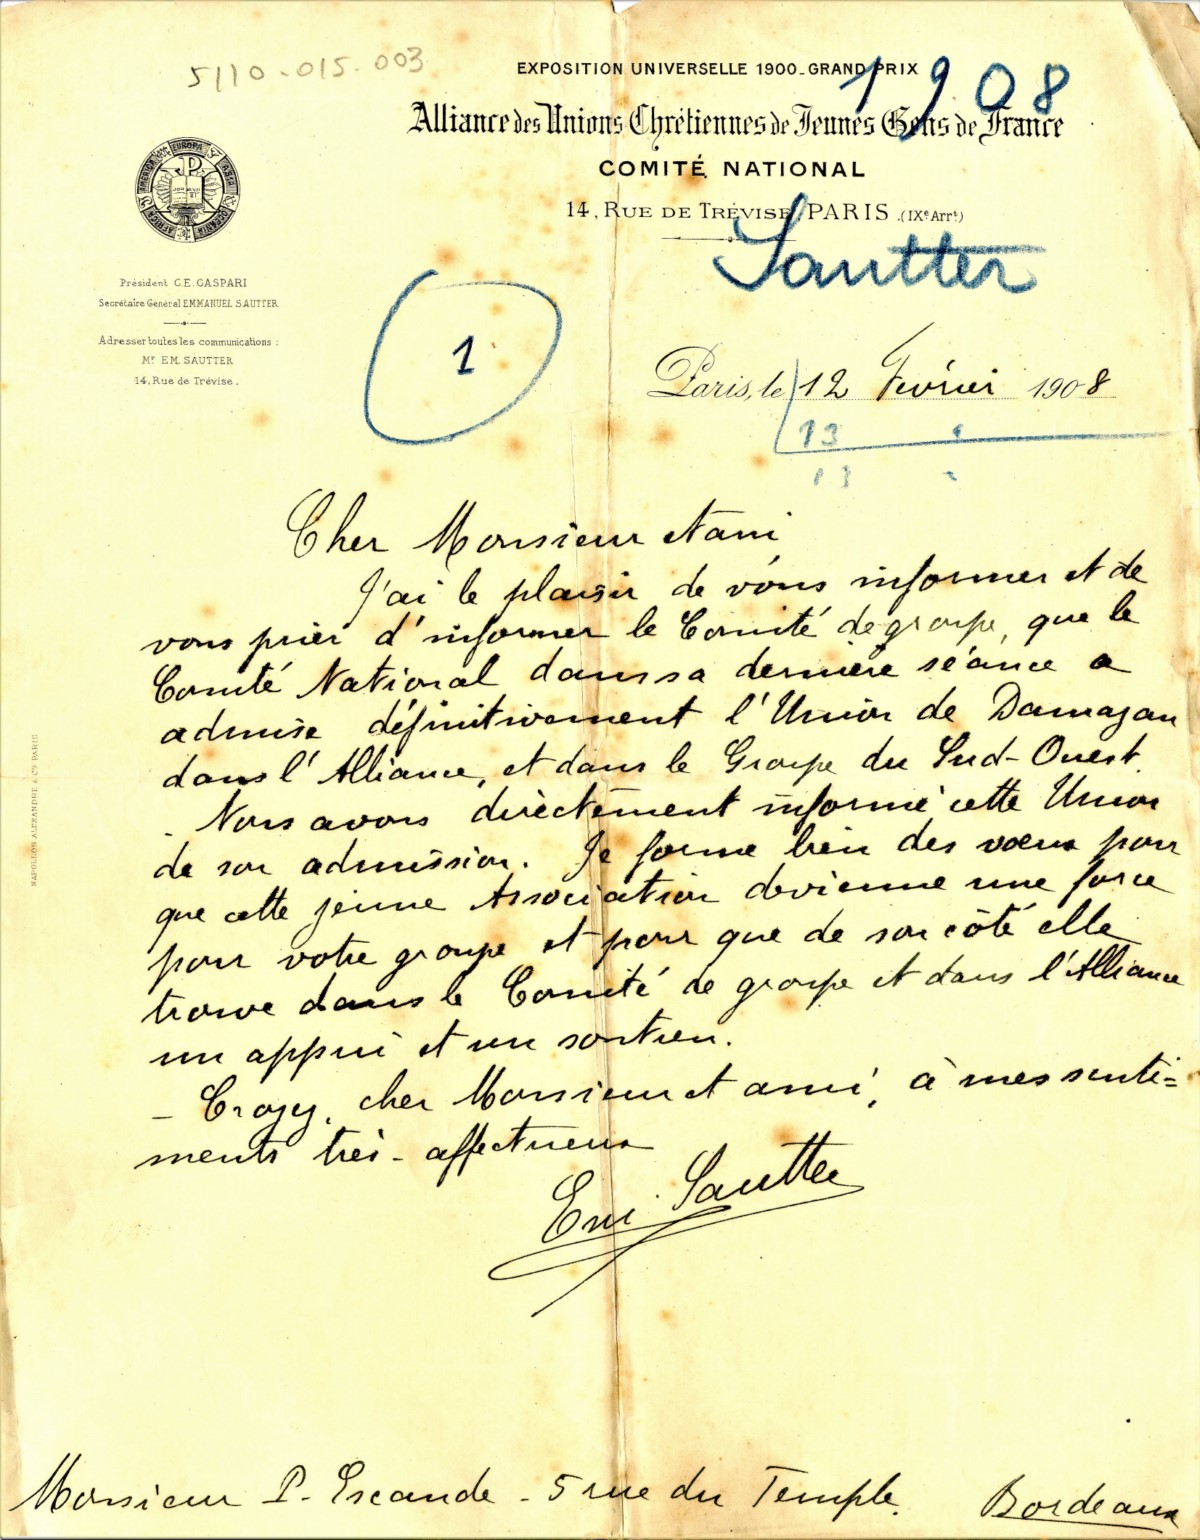 5110-015.003
EXPOSITION UNIVERSELLE 1900-GRAND PRIX
1908
Alliance des Unions Chrétiennes de Jeunes Gens de France
COMITÉ NATIONAL
14, RUE DE TRÉVISE, PARIS (IXe Arrt)
Sautter
EUROPA
ASIA
OCEANIA
AFRICA
AMERICA
Président C.E. GASPARI
Secrétaire Général EMMANUEL SAUTTER
Adresser toutes les communications :
Mr EM. SAUTTER
14, Rue de Trévise.
1
Paris, le 12 Février 1908
13 "
13 "
Cher Monsieur et ami,
J'ai le plaisir de vous informer et de
vous prier d'informer le Comité de groupe, que le
Comité National dans sa dernière séance a
admise définitivement l'Union de Damazan
dans l'Alliance, et dans le Groupe du Sud-Ouest.
- Nous avons directement informé cette Union
de son admission. Je forme bien des voeux pour
que cette jeune Association devienne une force
pour votre groupe et pour que de son côté elle
trouve dans le Comité de groupe et dans l'Alliance
un appui et un soutien.
- Croyez, cher Monsieur et ami, à mes senti=
ments très-affectueux
Em. Sautter
NAPOLEON ALEXANDRE & Cie PARIS
Monsieur P. Escande - 5 rue du Temple. Bordeaux